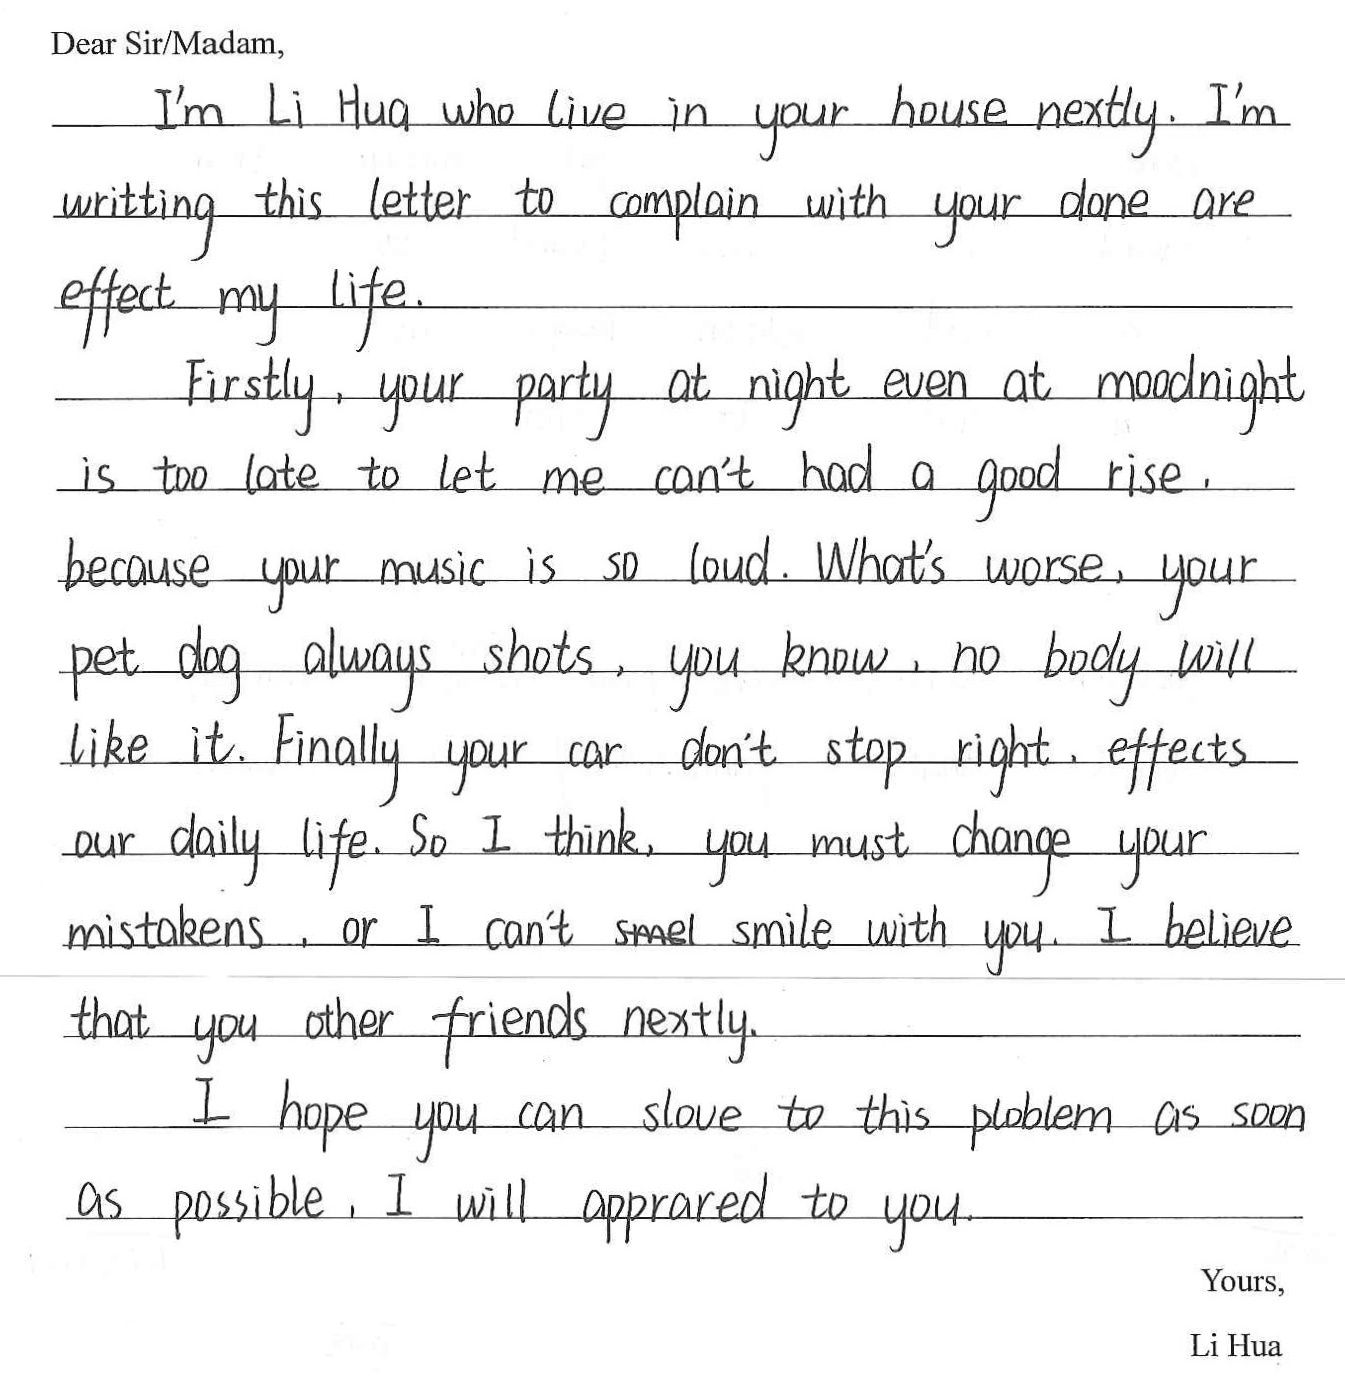 Dear Sir/Madam,
I'm Li Hua who live in your house nextly. I'm
writting this letter to complain with your done are
effect my life.
Firstly, your party at night even at moodnight
is too late to let me can't had a good rise,
because your music is so loud. What's worse, your
pet dog always shots, you know, no body will
like it. Finally your car don't stop right, effects
our daily life. So I think, you must change your
mistakens, or I can't smile with you. I believe
that you other friends nextly.
I hope you can slove to this ploblem as soon
as possible, I will apprared to you.
Yours,
Li Hua